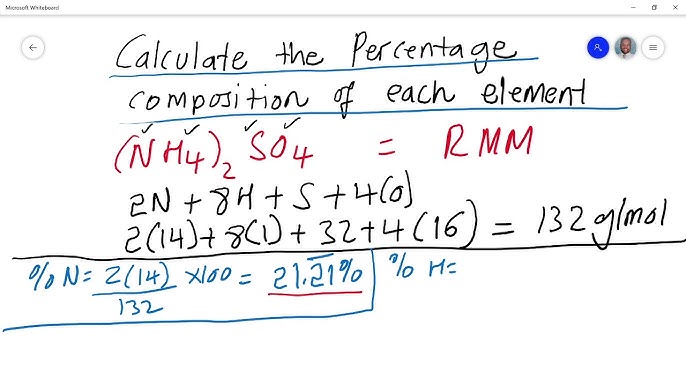 Microsoft Whiteboard
Calculate the Percentage
composition of each element
(NH4)2 SO4 = RMM
2N + 8H + S + 4(O)
2(14) + 8(1) + 32 + 4(16) = 132 g/mol
% N = 2(14)/132 x100 = 21.21% % H=